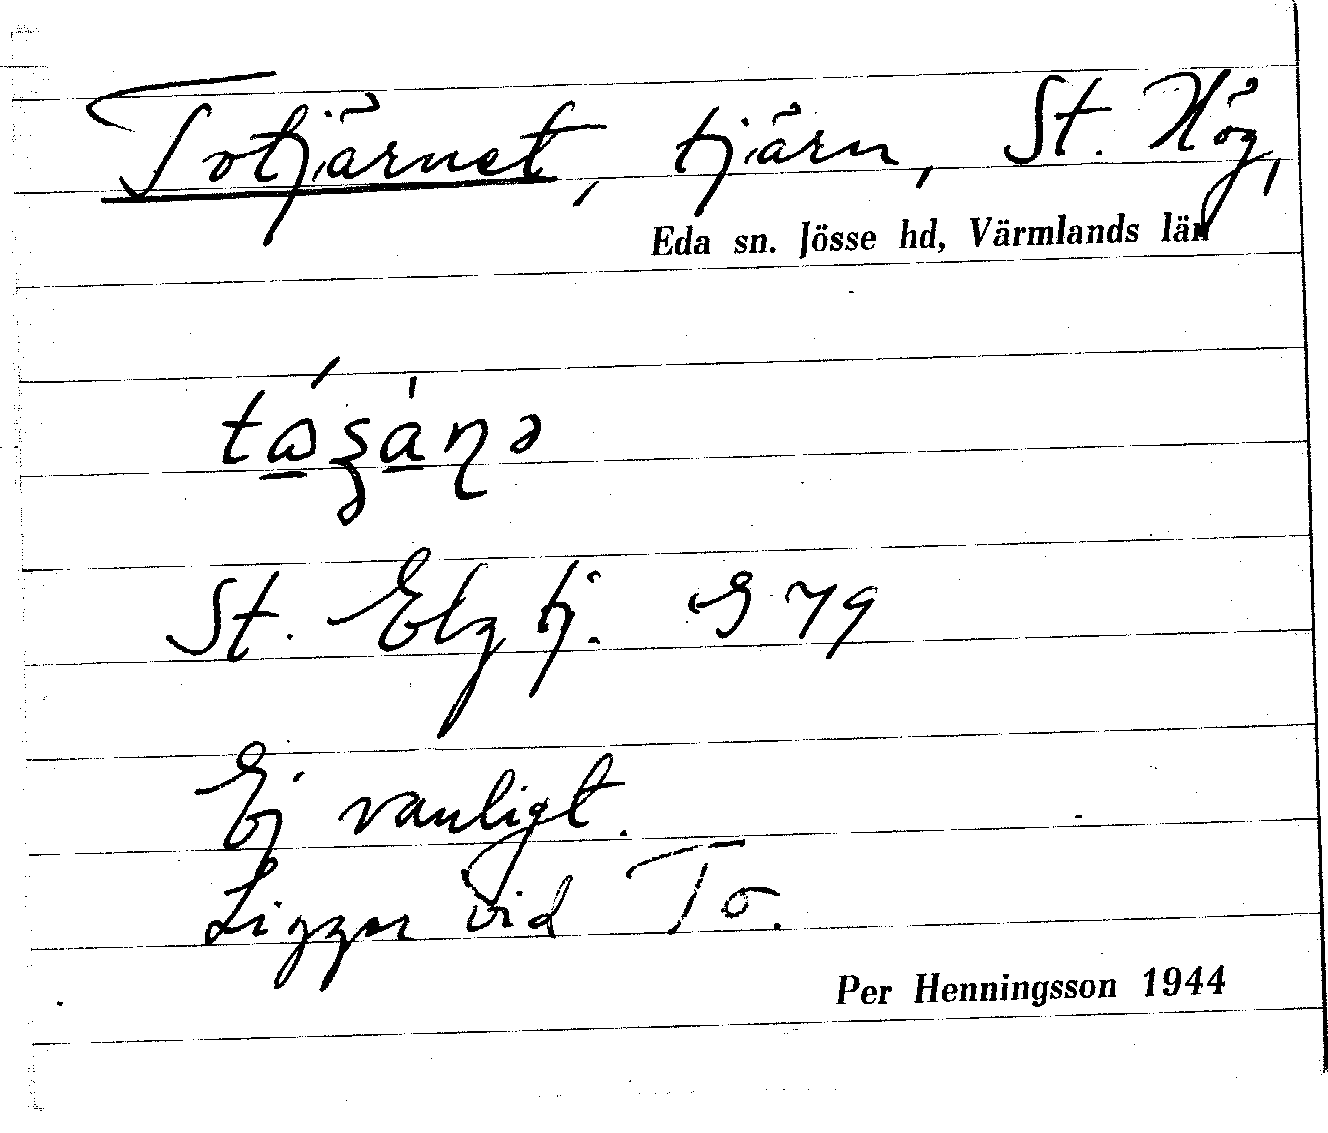 Totjärnet, tjärn, St. Hög,
Eda sn. Jösse hd, Värmlands län
St. Elgtj. 979
Ej vanligt.
Ligger vid To.
Per Henningsson 1944